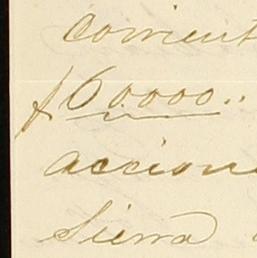 corrient
$60.000..
accione
Sierra